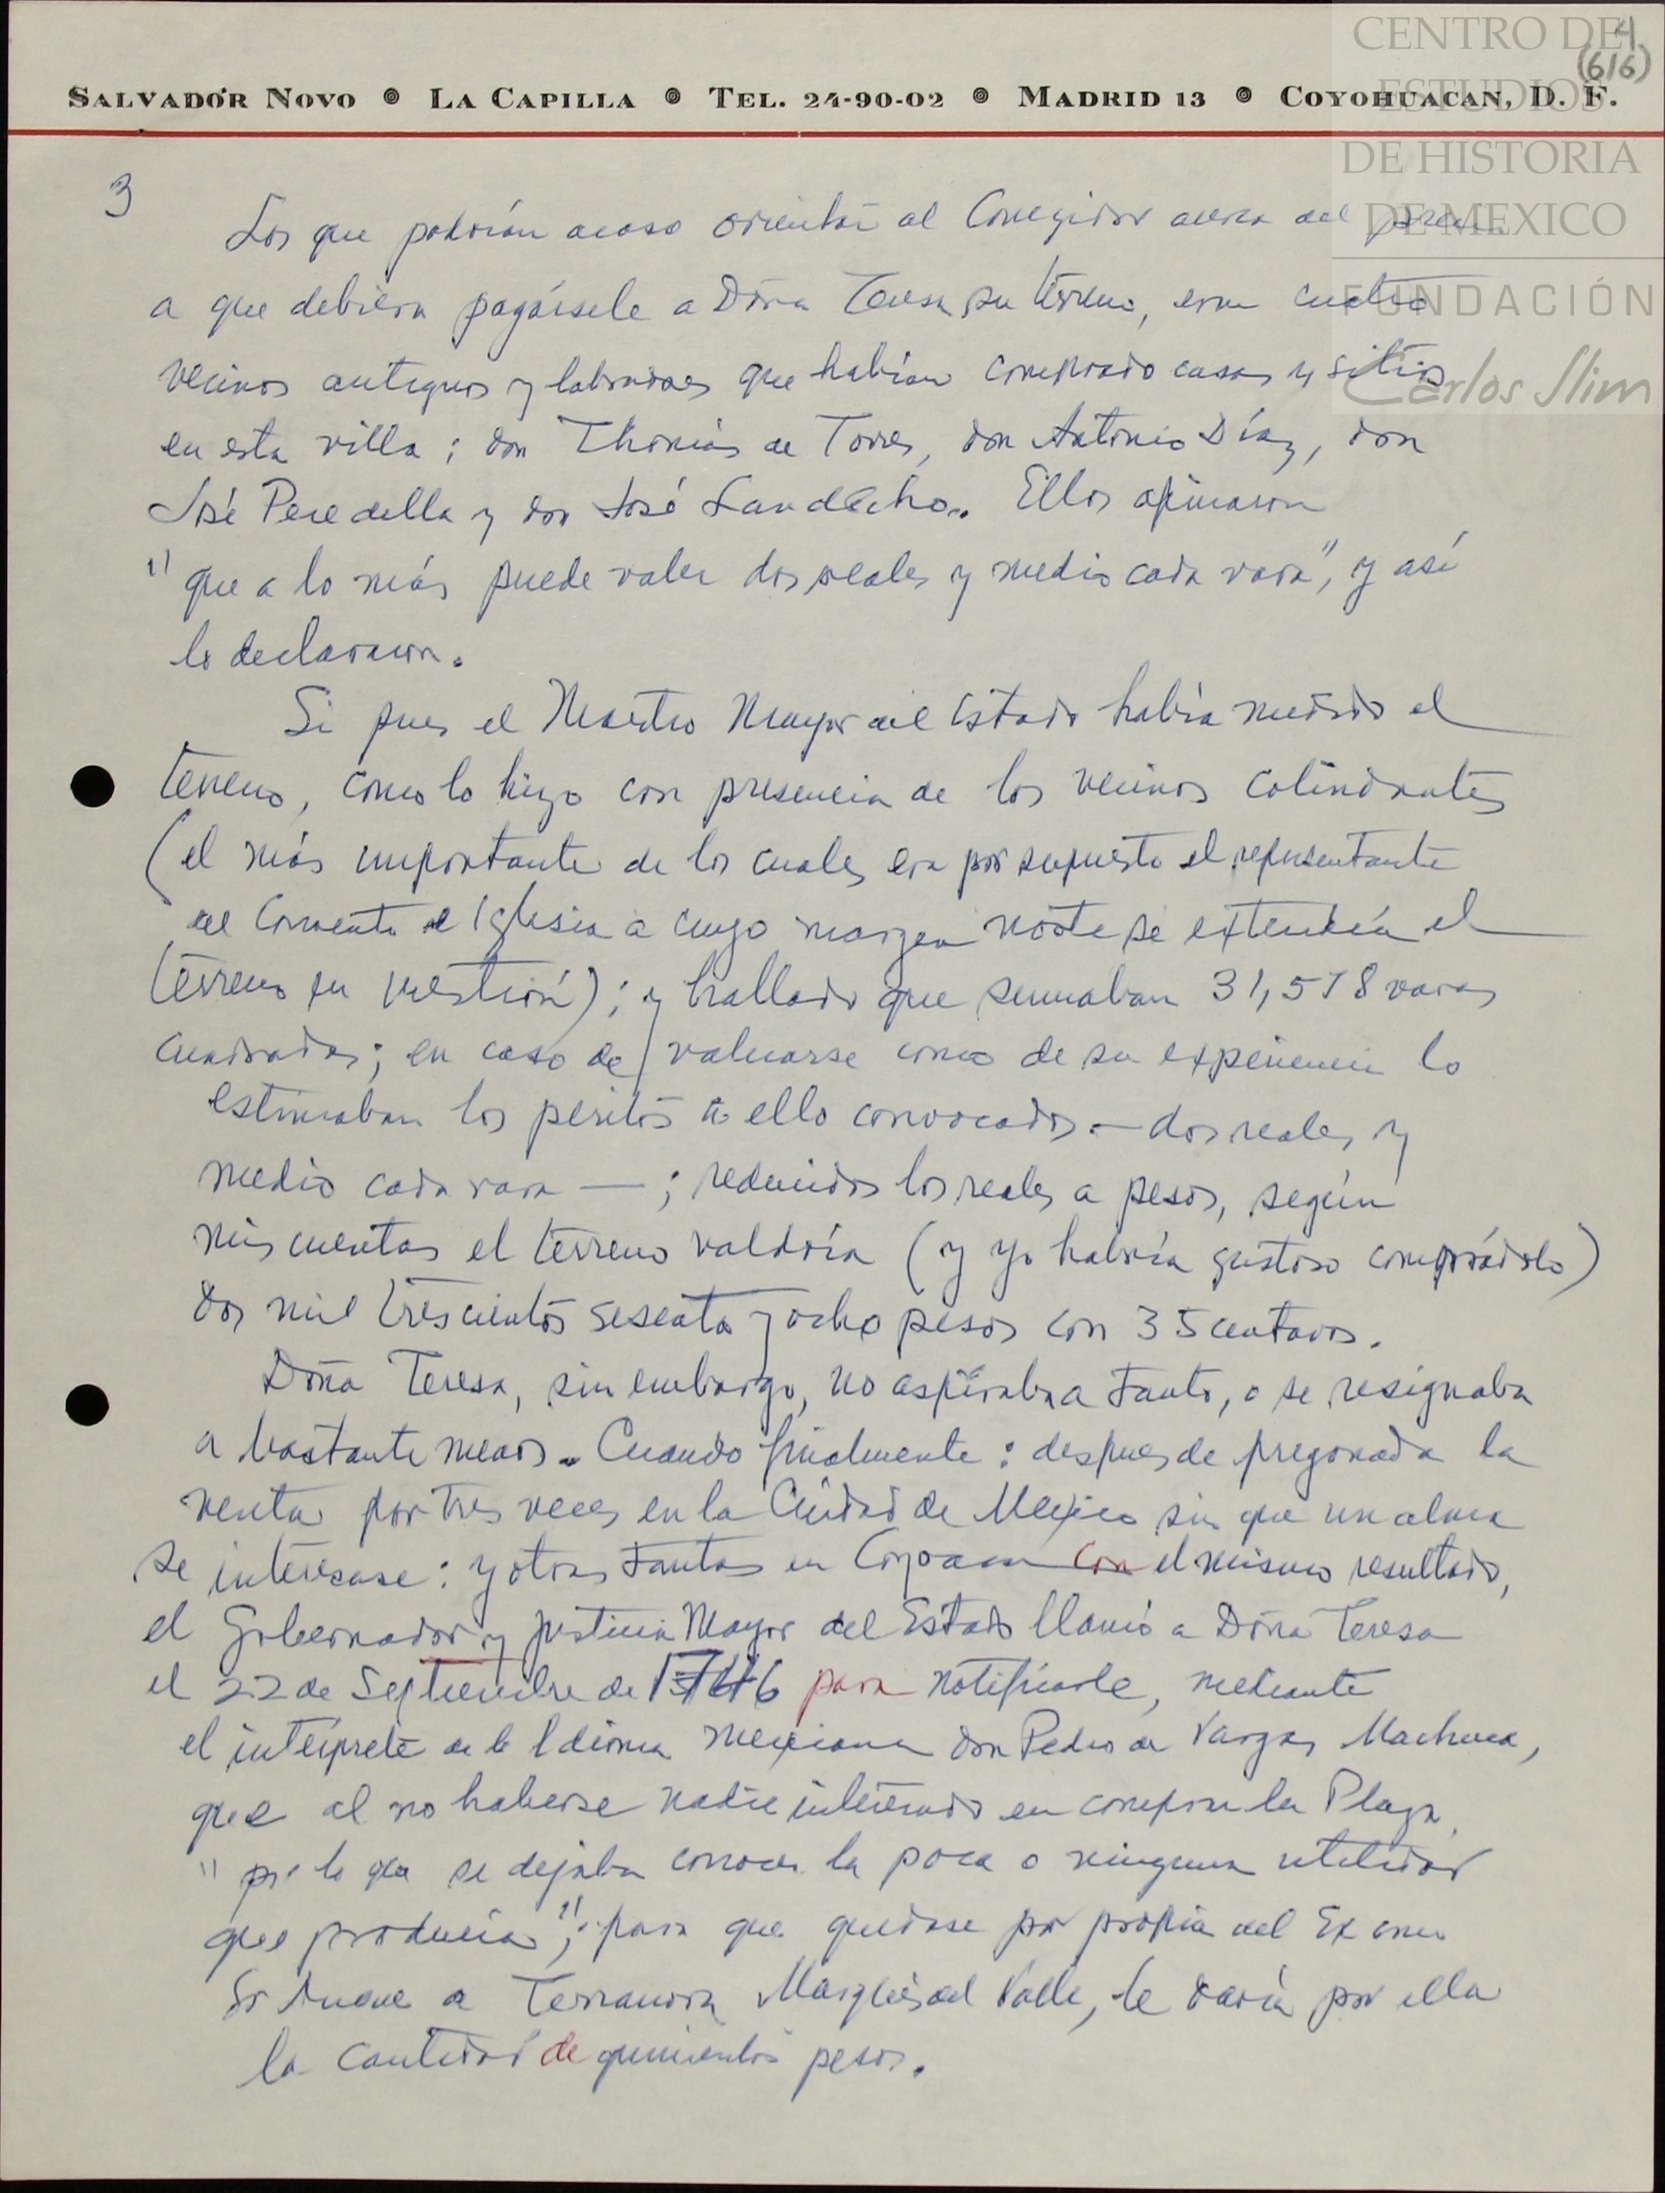 CENTRO DE
ESTUDIOS
DE HISTORIA
DE MEXICO
FUNDACIÓN
Carlos Slim
4
(616)
SALVADOR NOVO • LA CAPILLA • TEL. 24-90-02 • MADRID 13 • COYOHUACAN, D. F.
3
Los que podrían acaso orientar al Corregidor acerca del precio
a que debiera pagársele a Doña Teresa su terreno, eran cuatro
vecinos antiguos y labradores que habían comprado casas y sitios
en esta villa; don Thomás de Torres, don Antonio Díaz, don
José Peredella y don José Landecho. Ellos opinaron
"que a lo más puede valer dos reales y medio cada vara", y así
lo declararon.
Si pues el Maestro Mayor del Estado había medido el
terreno, como lo hizo con presencia de los vecinos colindantes
(el más importante de los cuales era por supuesto el representante
del Convento e Iglesia a cuyo margen norte se extendía el
terreno en cuestión); y hallado que sumaban 31,578 varas
cuadradas; en caso de valuarse como de su experiencia lo
estimaban los peritos a ello convocados — dos reales y
medio cada vara —; reducidos los reales a pesos, según
mis cuentas el terreno valdría (y yo habría gustoso comprádolo)
dos mil trescientos sesenta y ocho pesos con 35 centavos.
Doña Teresa, sin embargo, no aspiraba a tanto, o se resignaba
a bastante menos. Cuando finalmente: después de pregonada la
venta por tres veces en la Ciudad de Mexico sin que un alma
se interesase: y otras tantas en Coyoacan con el mismo resultado,
el Gobernador y Justicia Mayor del Estado llamó a Doña Teresa
el 22 de Septiembre de 1746 para notificarle, mediante
el intérprete de la Idioma mexicana don Pedro de Vargas Machuca,
que al no haberse nadie interesado en comprar la Plaza,
"por lo que se dejaba conocer la poca o ninguna utilidad
que producía"; para que quedase por propia del Exmo
Sr Duque de Terranova Marqués del Valle, le daría por ella
la cantidad de quinientos pesos.